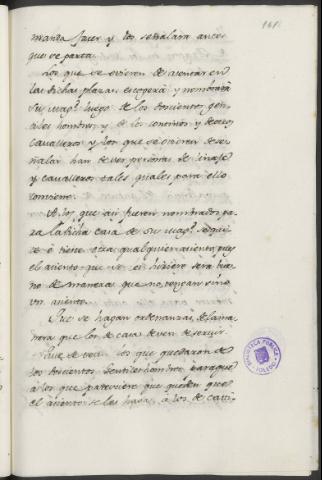 161
manda hacer y los señalara antes
que se parta.
Los que se ovieren de asentar en
las dichas plazas escogera y nombrara
su magd. luego de los doscientos gen-
tiles hombres y de los continos y de otros
cavalleros y los que se ovieren de se-
ñalar han de ser personas de linaje
y cavalleros tales quales para ello
conviene.
A los que asi fueren nombrados pa-
ra la dicha casa de su magd. se quite
o tiene otra qualquier asiento pues
el asiento que se les hiziere sera bue-
no de manera que no tengan sino
un asiento.
Que se hagan ordenanzas de la ma-
nera que los de casa deven de servir.
Que se vea los que quedaron de
los doscientos gentiles hombres para que
a los que pareciere que queden que
el asiento se les haga, a los de casti-
BIBLIOTECA PUBLICA
TOLEDO